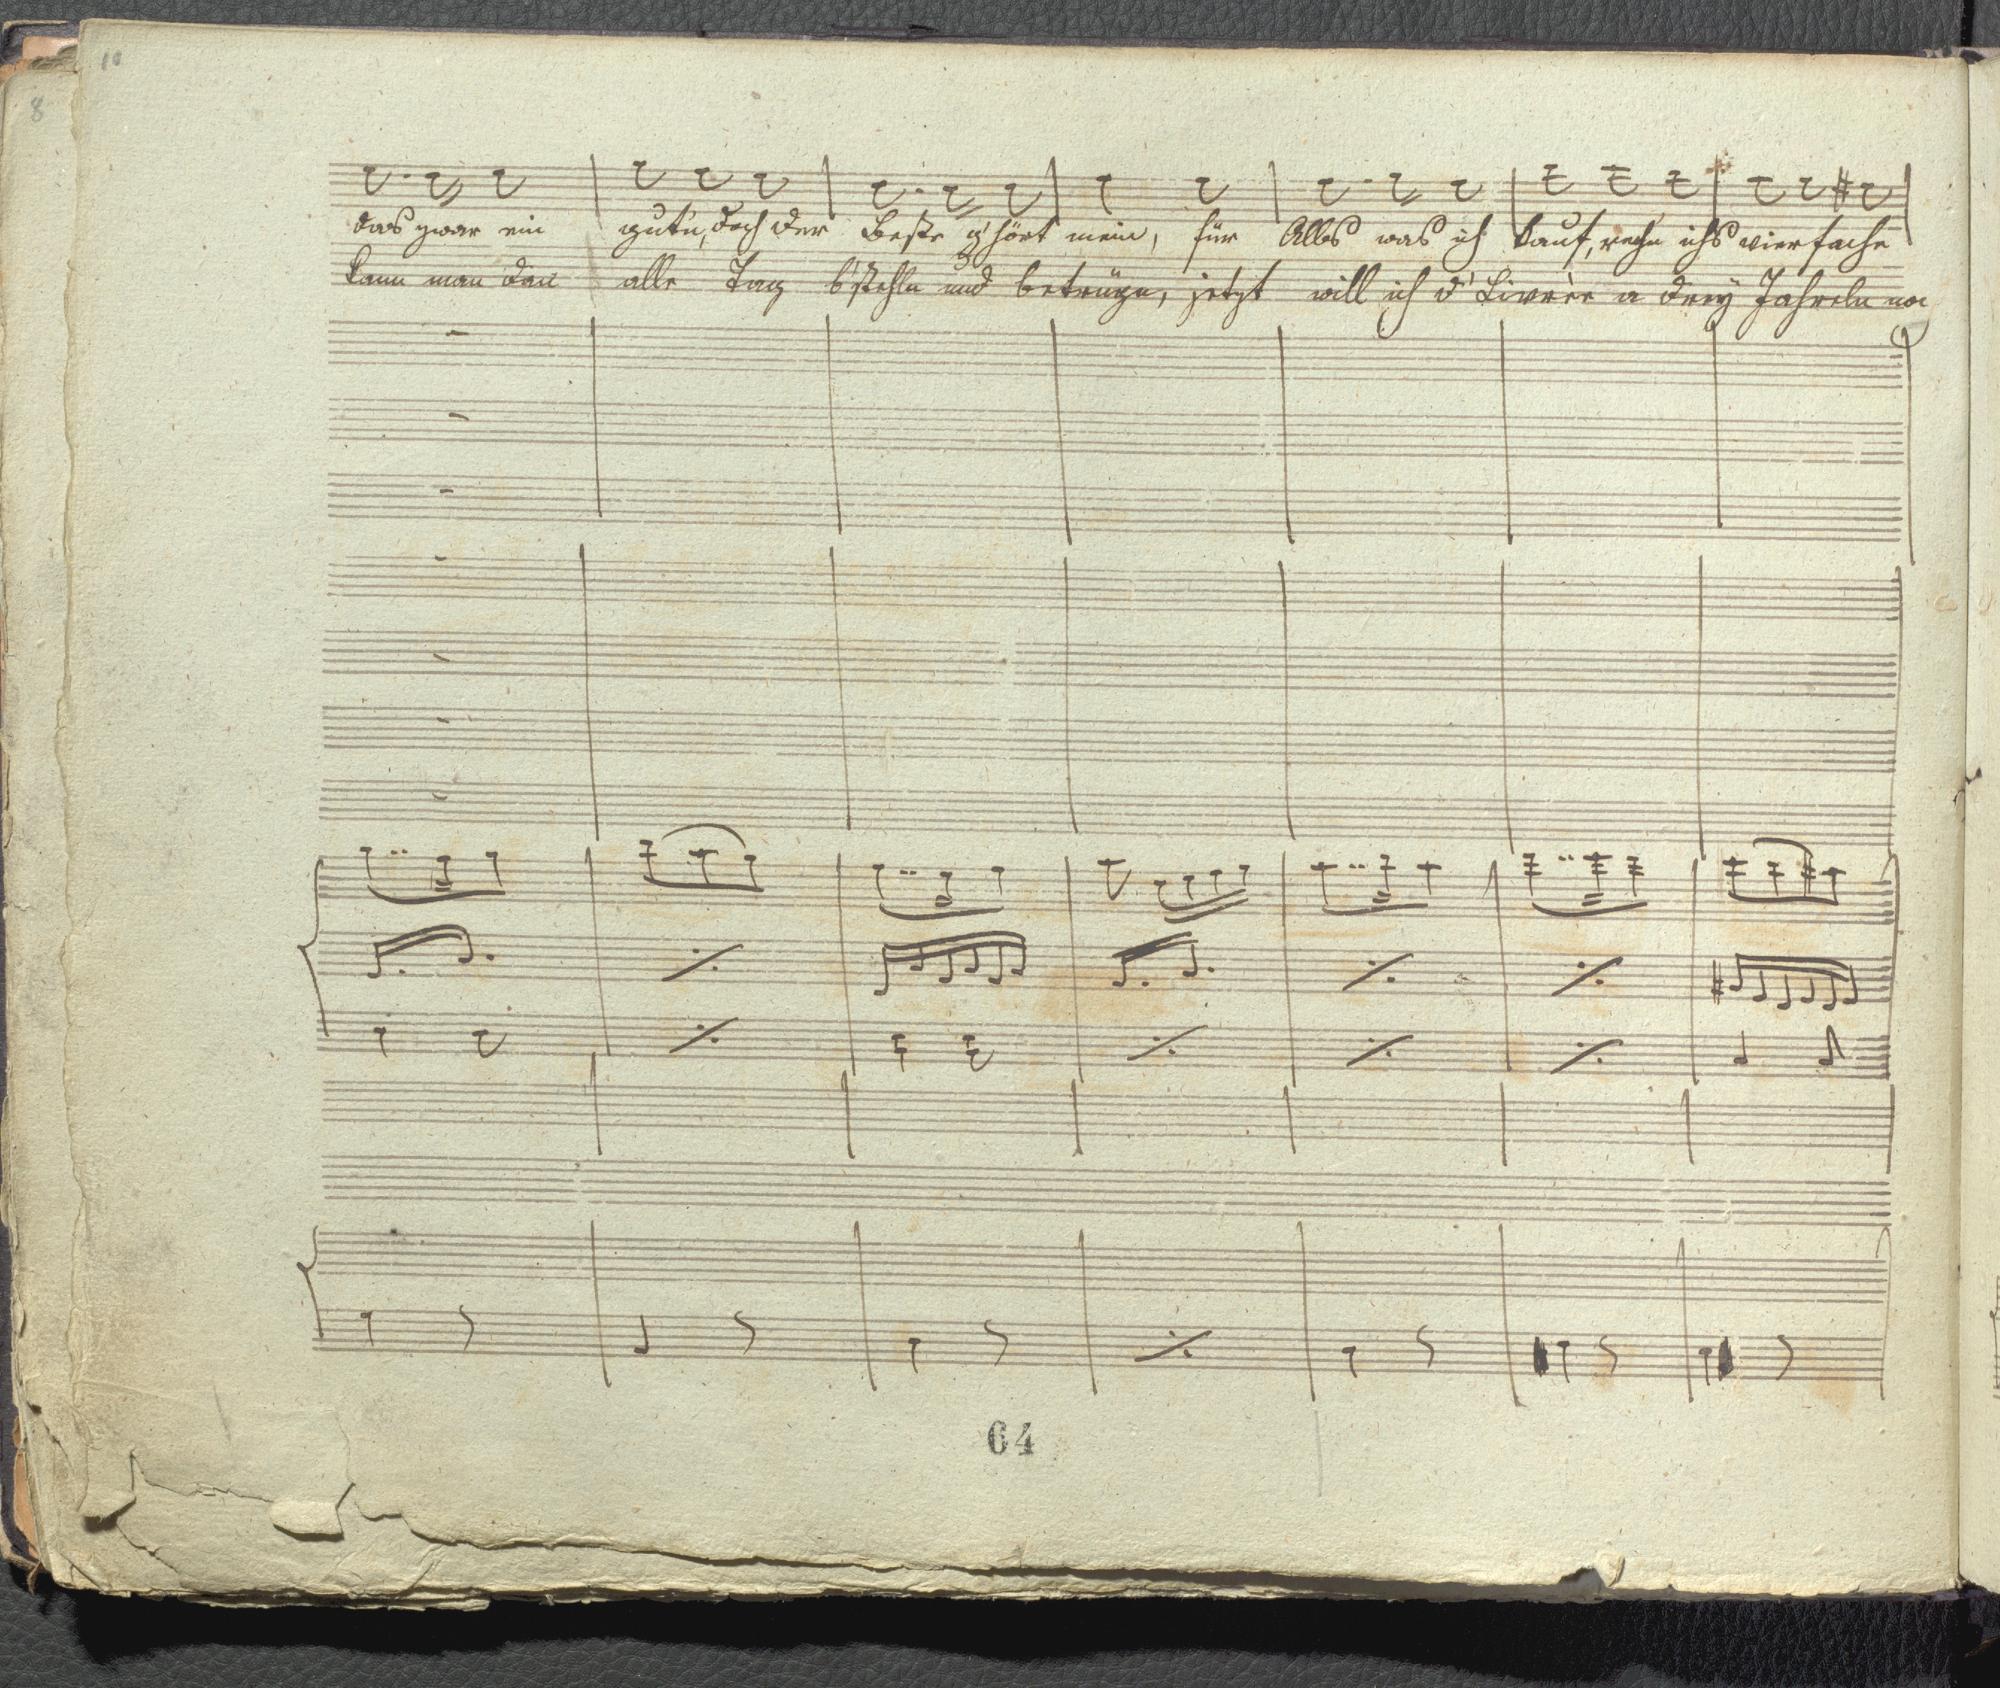 10
8
das zwar ein gut'n, doch der Beste g'hört mein, für Alles was ich kauf, rechn ichs vierfache
kann man den alle Tag b'stehln und betrügn, jetzt will ich d' Livrèe a drey Jahreln
64